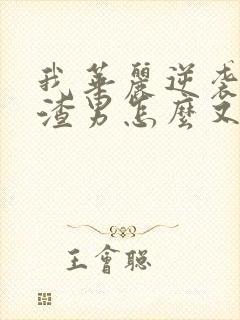 我華麗逆襲
渣男怎麼又
王會聰